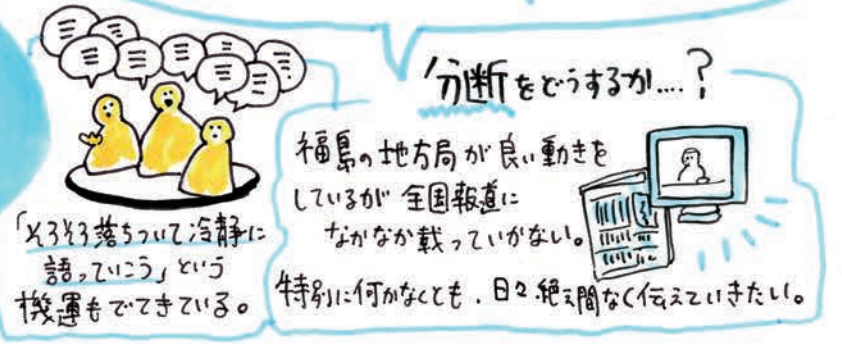 「そろそろ落ちついて冷静に
語っていこう」という
機運もでてきている。
分断をどうするか....?
福島の地方局が良い動きを
しているが全国報道に
なかなか載っていかない。
特別に何かなくとも、日々絶え間なく伝えていきたい。